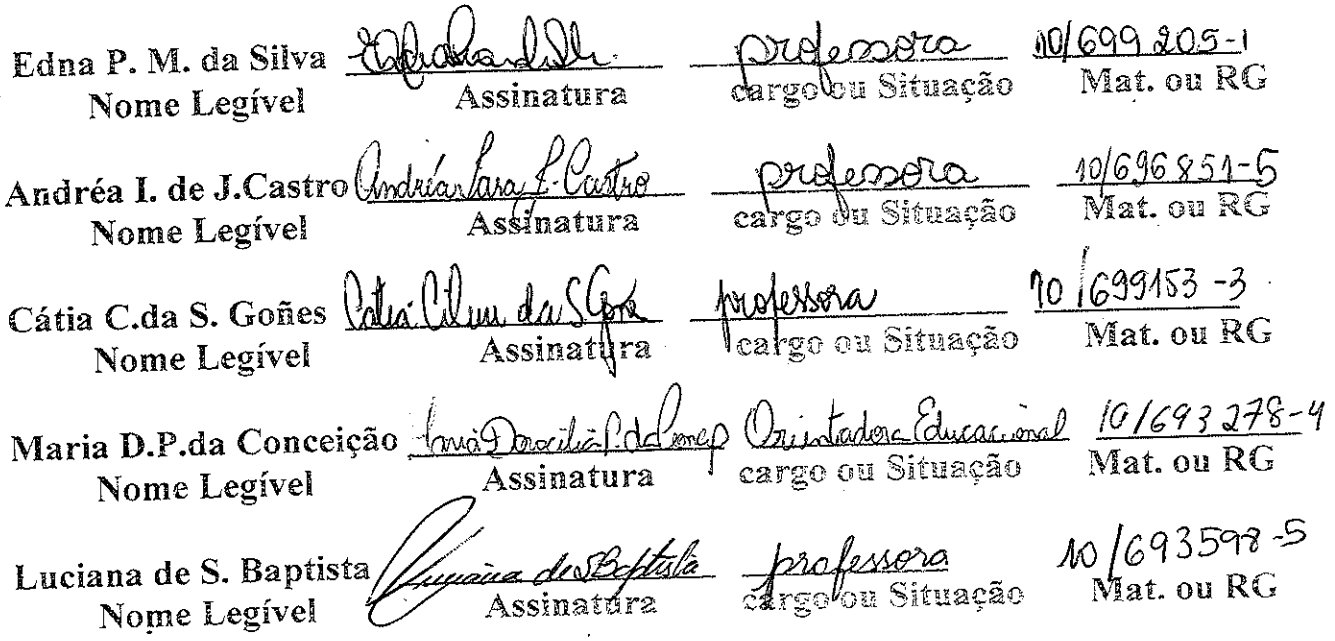 Edna P. M. da Silva professora 10/699 205-1
Nome Legível Assinatura cargo ou Situação Mat. ou RG
Andréa I. de J.Castro Andréa Iara J. Castro professora 10/696 851-5
Nome Legível Assinatura cargo ou Situação Mat. ou RG
Cátia C.da S. Goñes Cátia da S professora 10/699153-3
Nome Legível Assinatura cargo ou Situação Mat. ou RG
Maria D.P.da Conceição Orientadora Educacional 10/693 278-4
Nome Legível Assinatura cargo ou Situação Mat. ou RG
Luciana de S. Baptista Luciana de S Baptista professora 10/693598-5
Nome Legível Assinatura cargo ou Situação Mat. ou RG